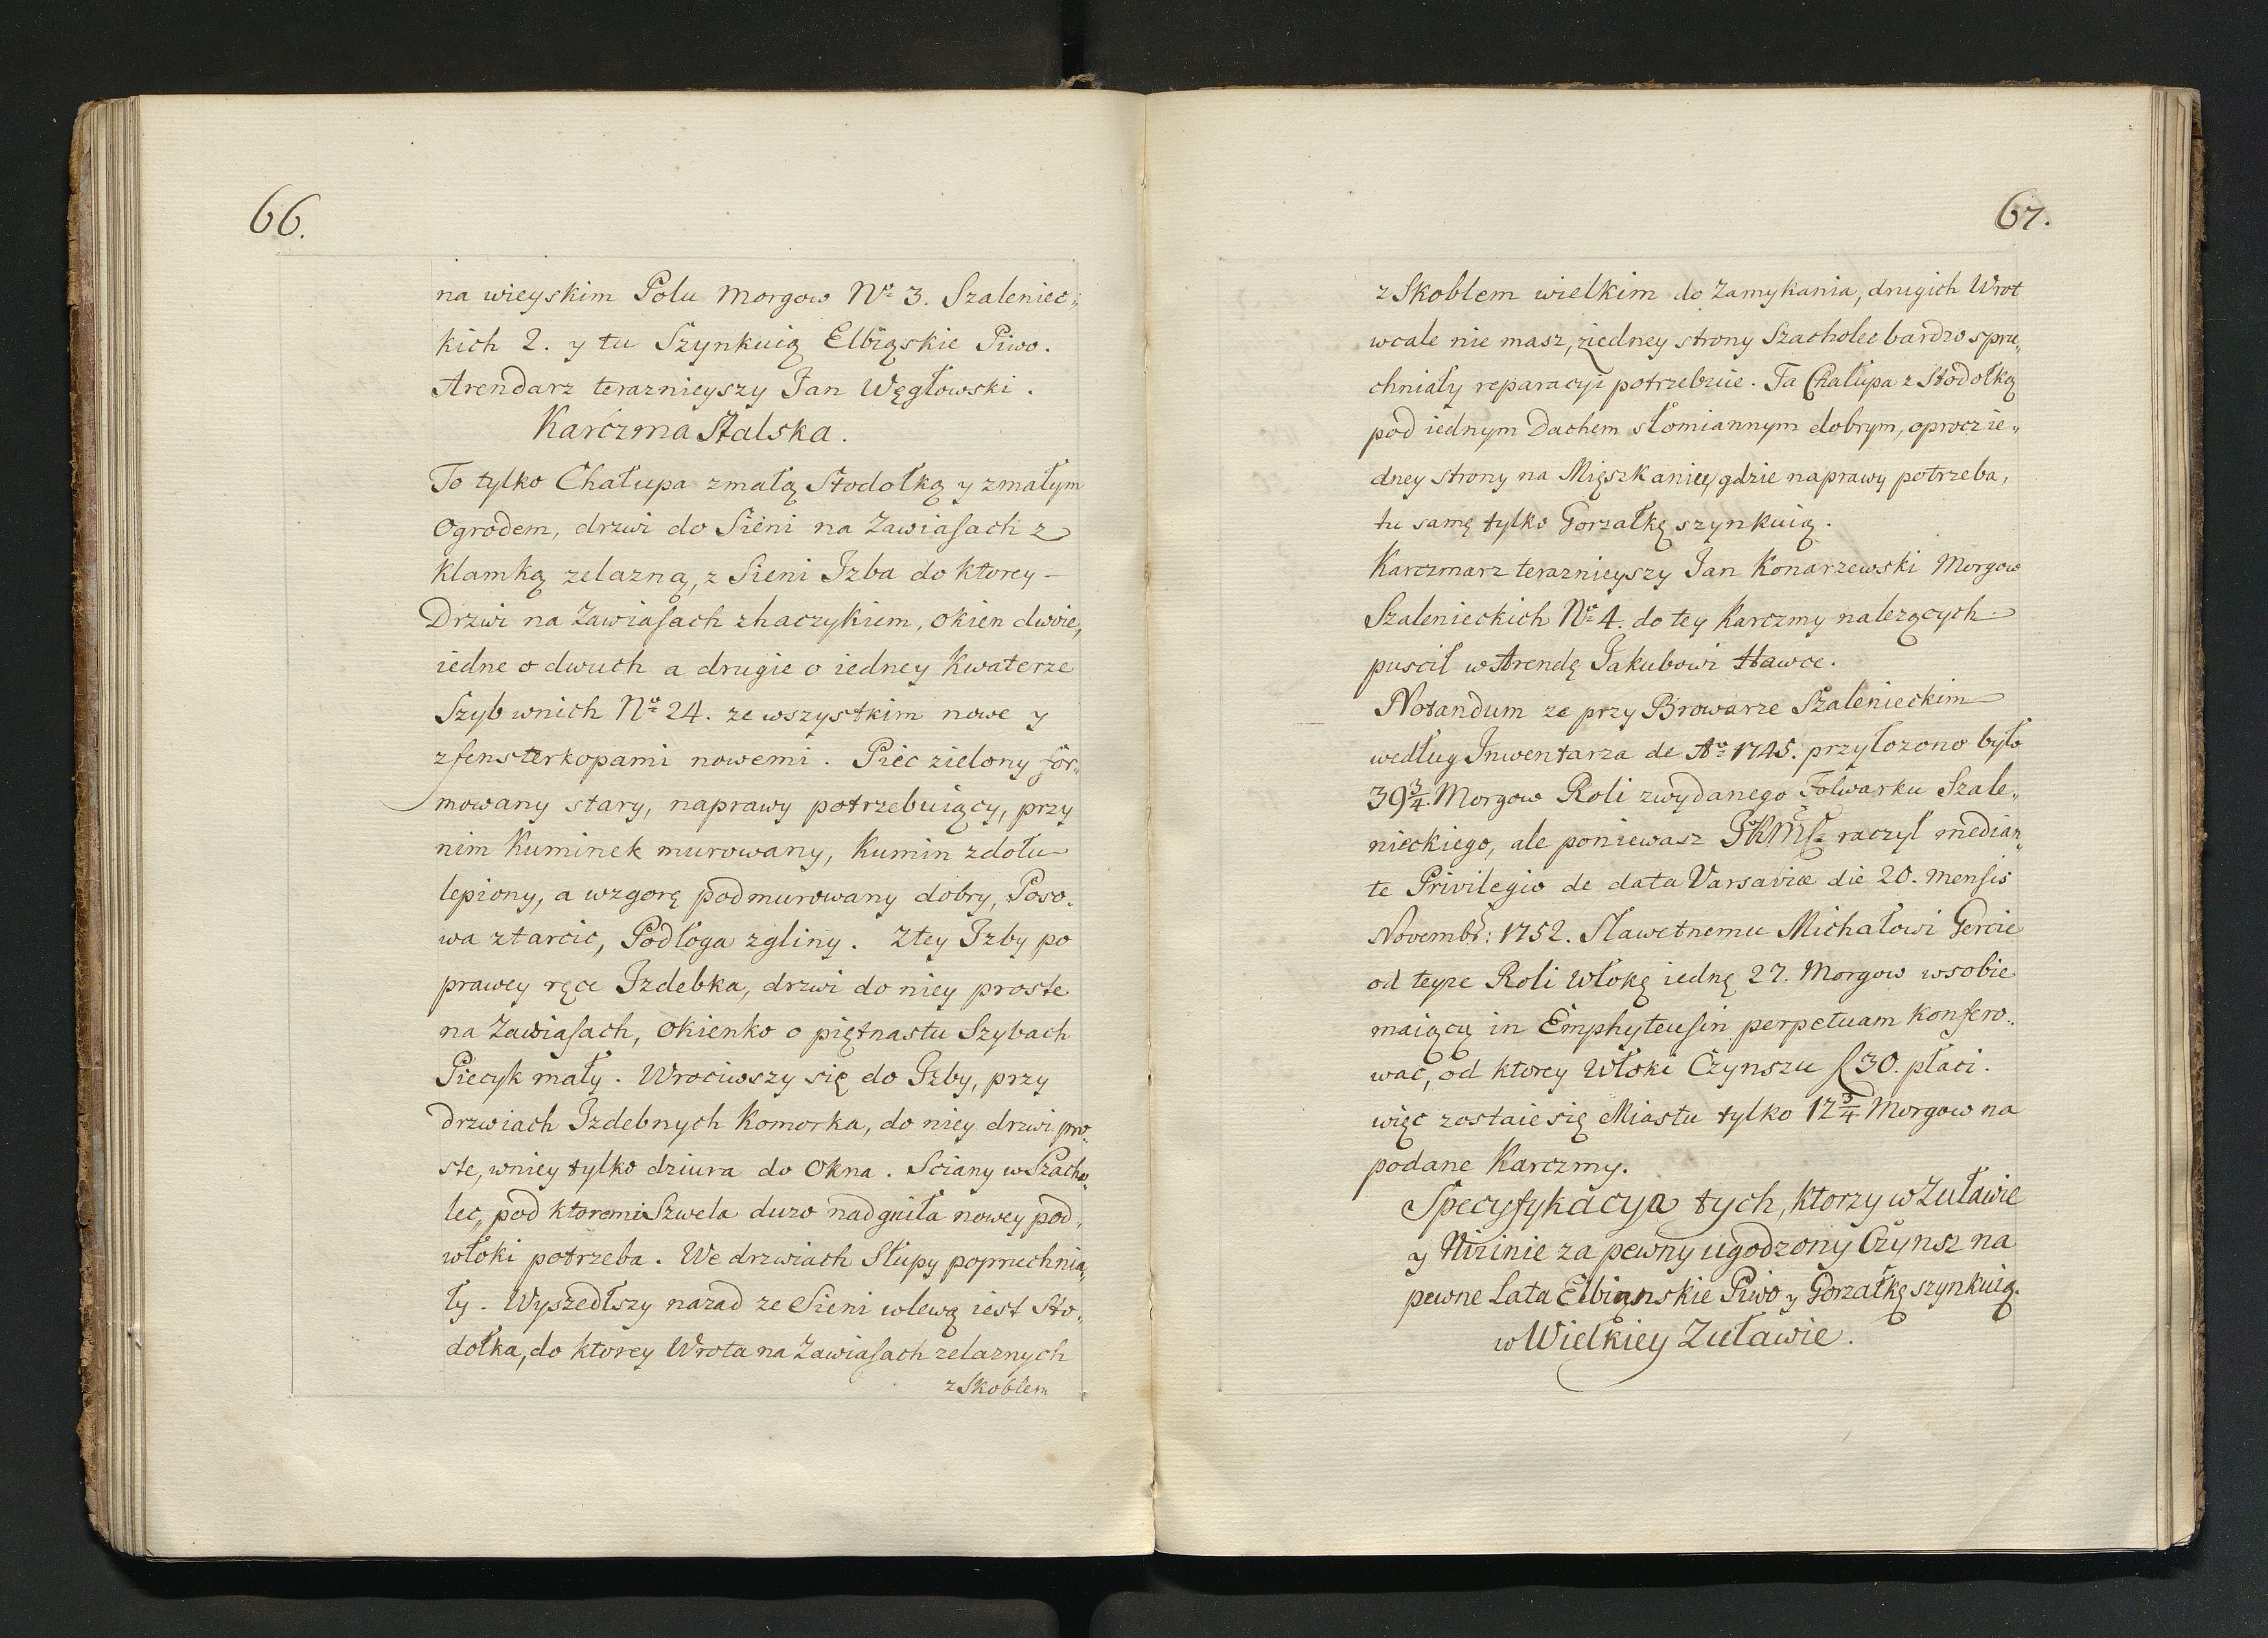 66.
na wieyskim Polu Morgow No 3. Szaleniec„
kich 2. y tu Szynkuią Elbiąskie Piwo.
Arendarz teraznieyszy Jan Węgłowski.
Karczma Stalska.
To tylko Chałupa zmałą Stodołką y zmałym
Ogrodem, drzwi do Sieni na Zawiasach z
Klamką zelazną, z Sieni Izba do ktorey –
Drzwi na Zawiasach zhaczykiem, okien dwoie,
iedne o dwuch a drugie o iedney Kwaterze
Szyb wnich No 24. ze wszystkim nowe y
zfensterkopami nowemi. Piec zielony for„
mowany stary, naprawy potrzebuiący, przy
nim Kuminek murowany, Kumin zdołu
lepiony, a wzgorę podmurowany dobry, Poso„
wa ztarcic, Podłoga zgliny. Ztey Izby po
prawey ręce Izdebka, drzwi do niey proste
na Zawiasach, Okienko o piętnastu Szybach
Piecyk mały. Wrociwszy się do Izby, przy
drzwiach Izdebnych Komorka, do niey drzwi pro„
ste, wniey tylko dziura do Okna. Sciany w Szacho„
lec, pod ktoremi Szwela duzo nadgniła nowey pod„
włoki potrzeba. We drzwiach Słupy popruchnia„
ły. Wyszedłszy nazad ze Sieni wlewą iest Sto„
dołka, do ktorey Wrota na Zawiasach zelaznych
z Skoblem
67.
z Skoblem wielkim do Zamykania, drugich Wrot
wcale nie masz, ziedney strony Szacholec bardzo spru„
chniały reparacyi potrzebuie. Ta Chałupa z Stodołką
pod iednym Dachem słomiannym dobrym, oprocz ie„
dney strony na Mięszkaniey gdzie naprawy potrzeba,
tu samę tylko Gorzałkę szynkuią.
Karczmarz teraznieyszy Jan Konarzewski Morgow
Szalenieckich No 4. do tey Karczmy nalezących
puscił w Arendę Jakubowi Hawce.
Notandum ze przy Browarze Szalenieckim
według Inwentarza de Ao 1745. przyłozono było
39 3/4. Morgow Roli zwydanego Folwarku Szale„
nieckiego, ale poniewasz raczył median„
te Privilegio de data Varsaviæ die 20. Mensis
Novembr: 1752. Sławetnemu Michałowi Gercie
od teyze Roli Włokę iednę 27. Morgow wsobie
maiącą in Emphyteusin perpetuam konfero„
wac, od ktorey Włoki Czynszu f 30. płaci.
więc zostaie się Miastu tylko 12 3/4 Morgow na
podane Karczmy.
Specyfykacya tych, ktorzy w Zuławie
y Nizinie za pewny ugodzony Czynsz na
pewne Lata Elbiąnskie Piwo y Gorzałkę szynkuią.
w Wielkiey Zuławie.